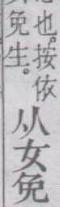 也。按依
免生。
从女免